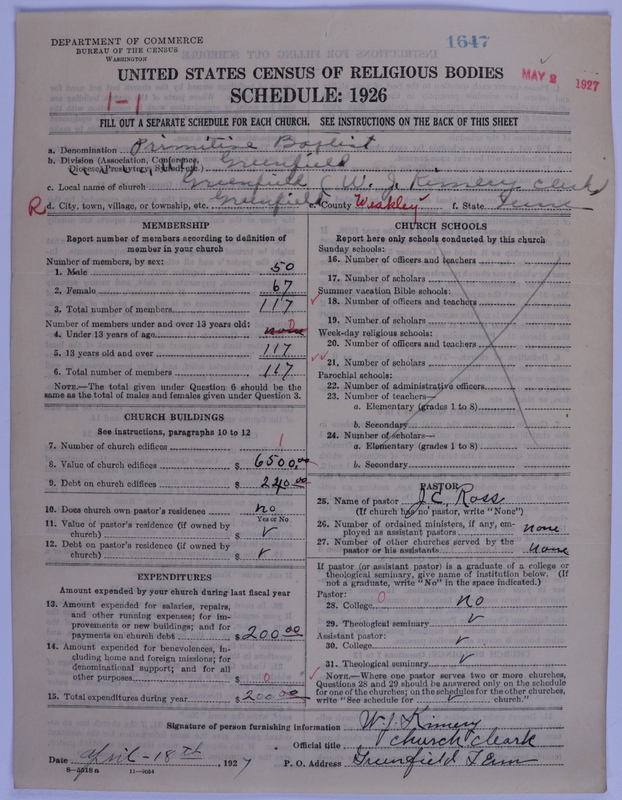 DEPARTMENT OF COMMERCE
BUREAU OF THE CENSUS
WASHINGTON
1647
UNITED STATES CENSUS OF RELIGIOUS BODIES
MAY 2 1927
SCHEDULE: 1926
1-1
FILL OUT A SEPARATE SCHEDULE FOR EACH CHURCH. SEE INSTRUCTIONS ON THE BACK OF THIS SHEET
a. Denomination Primitive Baptist
b. Division (Association, Conference, Diocese, Presbytery, Synod, etc.) Greenfield
c. Local name of church Greenfield (W. J. Kimery clerk)
R d. City, town, village, or township, etc. Greenfield e. County Weakley f. State Tenn
MEMBERSHIP
Report number of members according to definition of member in your church
Number of members, by sex:
1. Male 50
2. Female 67
3. Total number of members 117
Number of members under and over 13 years old:
4. Under 13 years of age none 0
5. 13 years old and over 117
6. Total number of members 117
NOTE.—The total given under Question 6 should be the same as the total of males and females given under Question 3.
CHURCH BUILDINGS
See instructions, paragraphs 10 to 12
7. Number of church edifices 1
8. Value of church edifices $ 6500.00
9. Debt on church edifices $ 240.00
10. Does church own pastor's residence no
Yes or No
11. Value of pastor's residence (if owned by church) $ ✓
12. Debt on pastor's residence (if owned by church) $ ✓
EXPENDITURES
Amount expended by your church during last fiscal year
13. Amount expended for salaries, repairs, and other running expenses; for improvements or new buildings; and for payments on church debt $ 200.00
14. Amount expended for benevolences, including home and foreign missions; for denominational support; and for all other purposes $ 0
15. Total expenditures during year $ 200.00
CHURCH SCHOOLS
Report here only schools conducted by this church
Sunday schools:
16. Number of officers and teachers
17. Number of scholars
Summer vacation Bible schools:
18. Number of officers and teachers
19. Number of scholars
Week-day religious schools:
20. Number of officers and teachers
21. Number of scholars
Parochial schools:
22. Number of administrative officers
23. Number of teachers—
a. Elementary (grades 1 to 8)
b. Secondary
24. Number of scholars—
a. Elementary (grades 1 to 8)
b. Secondary
PASTOR
25. Name of pastor J. C. Ross
(If church has no pastor, write "None")
26. Number of ordained ministers, if any, employed as assistant pastors none
27. Number of other churches served by the pastor or his assistants None
If pastor (or assistant pastor) is a graduate of a college or theological seminary, give name of institution below. (If not a graduate, write "No" in the space indicated.)
Pastor:
28. College 0 no
29. Theological seminary ✓
Assistant pastor:
30. College ✓
31. Theological seminary ✓
NOTE.—Where one pastor serves two or more churches, Questions 28 and 29 should be answered only on the schedule for one of the churches; on the schedules for the other churches, write "See schedule for ✓ church."
Signature of person furnishing information W. J. Kimery
Official title church cleark
Date April-18th, 1927 P. O. Address Greenfield Tenn
8-5518a 11-9054